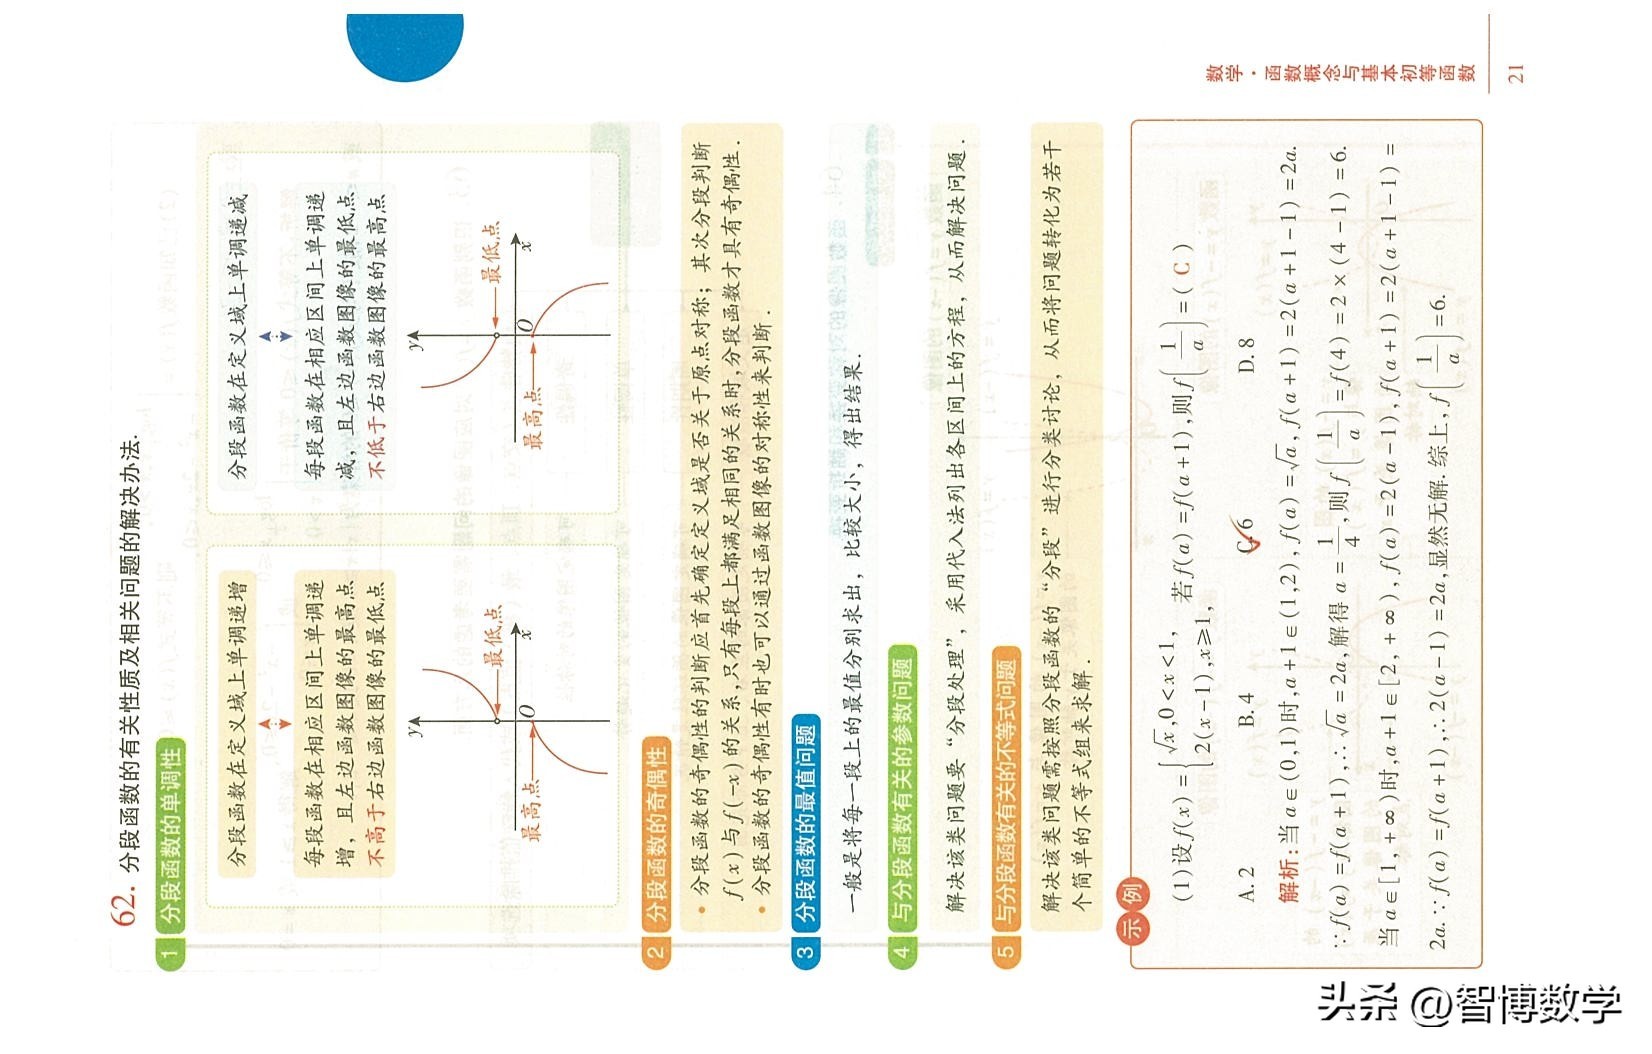 62. 分段函数的有关性质及相关问题的解决办法.
1 分段函数的单调性
分段函数在定义域上单调递增
每段函数在相应区间上单调递
增，且左边函数图像的最高点
不高于右边函数图像的最低点
y
最低点
O
x
最高点
分段函数在定义域上单调递减
每段函数在相应区间上单调递
减，且左边函数图像的最低点
不低于右边函数图像的最高点
y
最低点
O
x
最高点
2 分段函数的奇偶性
• 分段函数的奇偶性的判断应首先确定定义域是否关于原点对称；其次分段判断
f(x)与f(-x)的关系,只有每段上都满足相同的关系时,分段函数才具有奇偶性.
• 分段函数的奇偶性有时也可以通过函数图像的对称性来判断.
3 分段函数的最值问题
一般是将每一段上的最值分别求出，比较大小，得出结果.
4 与分段函数有关的参数问题
解决该类问题要“分段处理”，采用代入法列出各区间上的方程，从而解决问题.
5 与分段函数有关的不等式问题
解决该类问题需按照分段函数的“分段”进行分类讨论，从而将问题转化为若干
个简单的不等式组来求解.
示例
(1)设f(x)={√x,0<x<1, 2(x-1),x≥1, 若f(a)=f(a+1),则f(1/a)=( C )
A. 2 B. 4 C. 6 D. 8
解析:当a∈(0,1)时,a+1∈(1,2),f(a)=√a,f(a+1)=2(a+1-1)=2a.
∵f(a)=f(a+1),∴√a=2a,解得a=1/4,则f(1/a)=f(4)=2×(4-1)=6.
当a∈[1,+∞)时,a+1∈[2,+∞),f(a)=2(a-1),f(a+1)=2(a+1-1)=
2a.∵f(a)=f(a+1),∴2(a-1)=2a,显然无解.综上,f(1/a)=6.
数学·函数概念与基本初等函数
21
头条 @智博数学